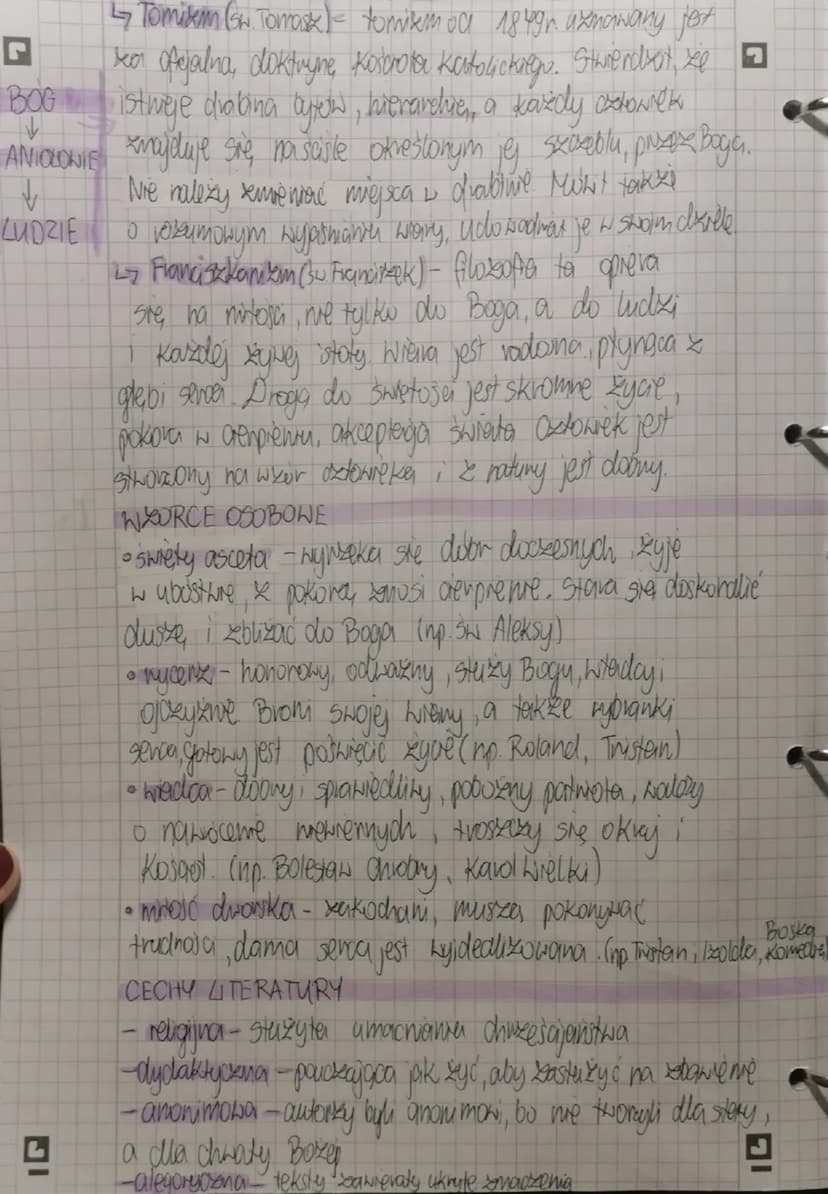 ↳ Tomizm (św. Tomasz) = tomizm od 1849r. uznawany jest
za oficjalną doktrynę Kościoła Katolickiego. Stwierdzał, że
istnieje drabina bytów, hierarchię, a każdy człowiek
znajduje się na ściśle określonym jej szczeblu, przez Boga.
Nie należy zmieniać miejsca w drabinie. Mówił także
o rozumowym wyjaśnianiu wiary, udowadniał je w swoim dziele.
BÓG
↓
ANIOŁOWIE
↓
LUDZIE
↳ Franciszkanizm (św Franciszek) - filozofia ta opiera
się na miłości, nie tylko do Boga, a do ludzi
i każdej żywej istoty. Wiara jest radosna, płynąca z
głębi serca. Drogą do świętości jest skromne życie,
pokora w cierpieniu, akceptacja świata. Człowiek jest
stworzony na wzór człowieka i z natury jest dobry.
WZORCE OSOBOWE
• święty asceta - wyrzeka się dóbr doczesnych, żyje
w ubóstwie, z pokorą znosi cierpienie. Stara się doskonalić
duszę i zbliżać do Boga (np. św Aleksy)
• rycerz - honorowy, odważny, służy Bogu, władcy i
ojczyźnie. Broni swojej wiary, a także wybranki
serca, gotowy jest poświęcić życie (np. Roland, Tristan)
• władca - dobry, sprawiedliwy, pobożny patriota, walczy
o nawrócenie niewiernych, troszczy się o kraj i
Kościół. (np. Bolesław Chrobry, Karol Wielki)
• miłość dworska - zakochani, muszą pokonywać
trudności, dama serca jest wyidealizowana. (np Tristan, Izolda, Boska Komedia)
CECHY LITERATURY
- religijna - służyła umacnianiu chrześcijaństwa
- dydaktyczna - pouczająca jak żyć, aby zasłużyć na zbawienie
- anonimowa - autorzy byli anonimowi, bo nie tworzyli dla sławy,
a dla chwały Bożej
- alegoryczna - teksty zawierały ukryte znaczenia